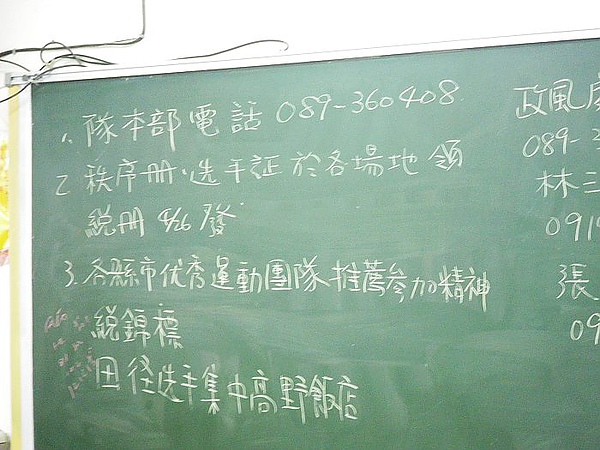 1. 隊本部電話 089-360408
2. 秩序册、选手証於各場地 領
総册 4/26 發
3. 各縣市优秀運動團隊推薦参加精神
総錦標
田径选手集中高野飯店
政風
089-3
林三
091
張
09